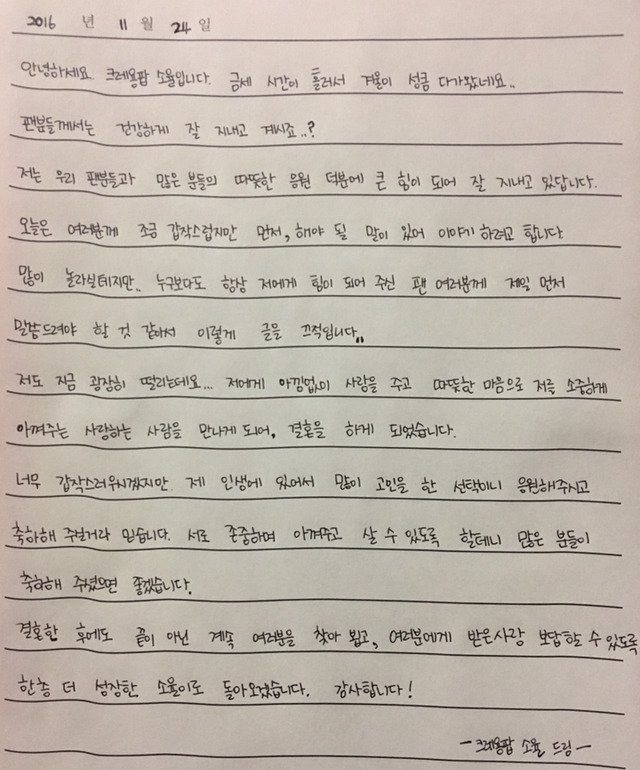 2016 년 11 월 24 일
안녕하세요. 크레용팝 소율입니다. 금세 시간이 흘러서 겨울이 성큼 다가왔네요..
팬분들께서는 건강하게 잘 지내고 계시죠..?
저는 우리 팬분들과 많은 분들의 따뜻한 응원 덕분에 큰 힘이 되어 잘 지내고 있답니다.
오늘은 여러분께 조금 갑작스럽지만 먼저, 해야 될 말이 있어 이야기 하려고 합니다
많이 놀라실테지만.. 누구보다도 항상 저에게 힘이 되어 주신 팬 여러분께 제일 먼저
말씀드려야 할 것 같아서 이렇게 글을 끄적입니다..
저도 지금 굉장히 떨리는데요... 저에게 아낌없이 사랑을 주고 따뜻한 마음으로 저를 소중하게
아껴주는 사랑하는 사람을 만나게 되어, 결혼을 하게 되었습니다.
너무 갑작스러우시겠지만 제 인생에 있어서 많이 고민을 한 선택이니 응원해주시고
축하해 주실거라 믿습니다. 서로 존중하며 아껴주고 살 수 있도록 할테니 많은 분들이
축하해 주셨으면 좋겠습니다.
결혼한 후에도 끝이 아닌 계속 여러분을 찾아 뵙고, 여러분에게 받은사랑 보답할 수 있도록
한층 더 성장한 소율이로 돌아오겠습니다. 감사합니다!
- 크레용팝 소율 드림 -